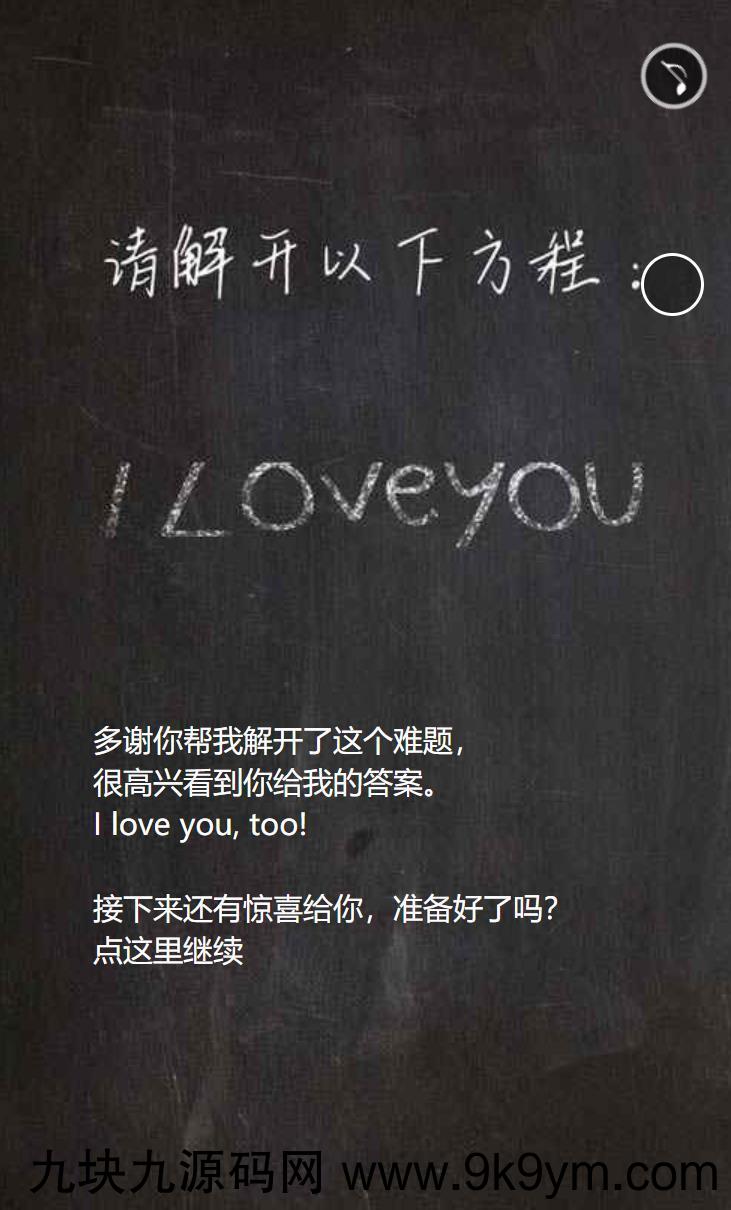 请解开以下方程：
I Love you
多谢你帮我解开了这个难题，
很高兴看到你给我的答案。
I love you, too!
接下来还有惊喜给你，准备好了吗?
点这里继续
九块九源码网 www.9k9ym.com